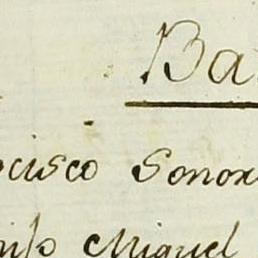 Ba
cisco Sonor
Miguel